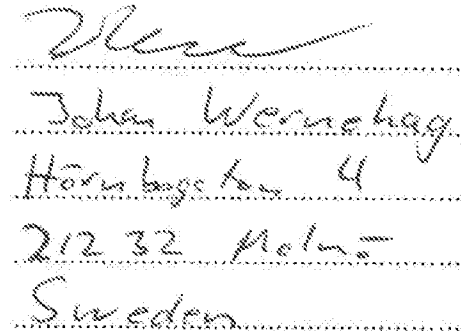 Johan Wernehag
Hörnbogatan 4
212 32 Malmö
Sweden